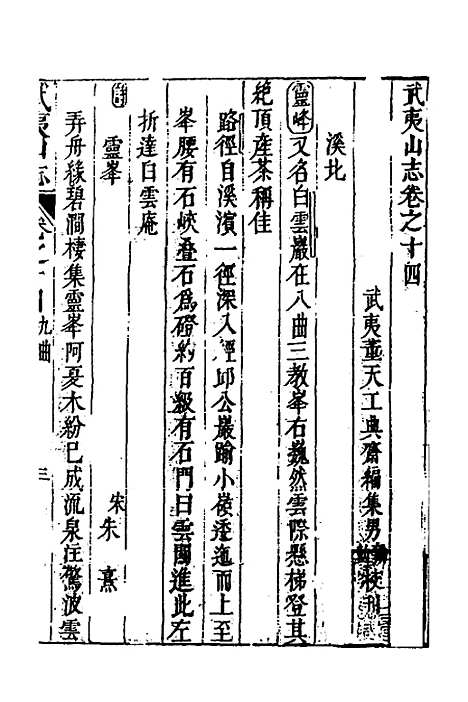 武夷山志卷之十四
武夷董天工典齋編集男
校刊
溪北
靈峰又名白雲巖在八曲三教峯右巍然雲際懸梯登其
絶頂產茶稱佳
路徑自溪濱一徑深入經邱公巖踰小嶺逶迤而上至
峯腰有石峽疊石爲磴約百級有石門曰雲關進此左
折達白雲庵
詩
靈峯
宋朱熹
弄舟緣碧澗棲集靈峯阿夏木紛已成流泉注驚波雲
武夷山志
卷之十四九曲
三